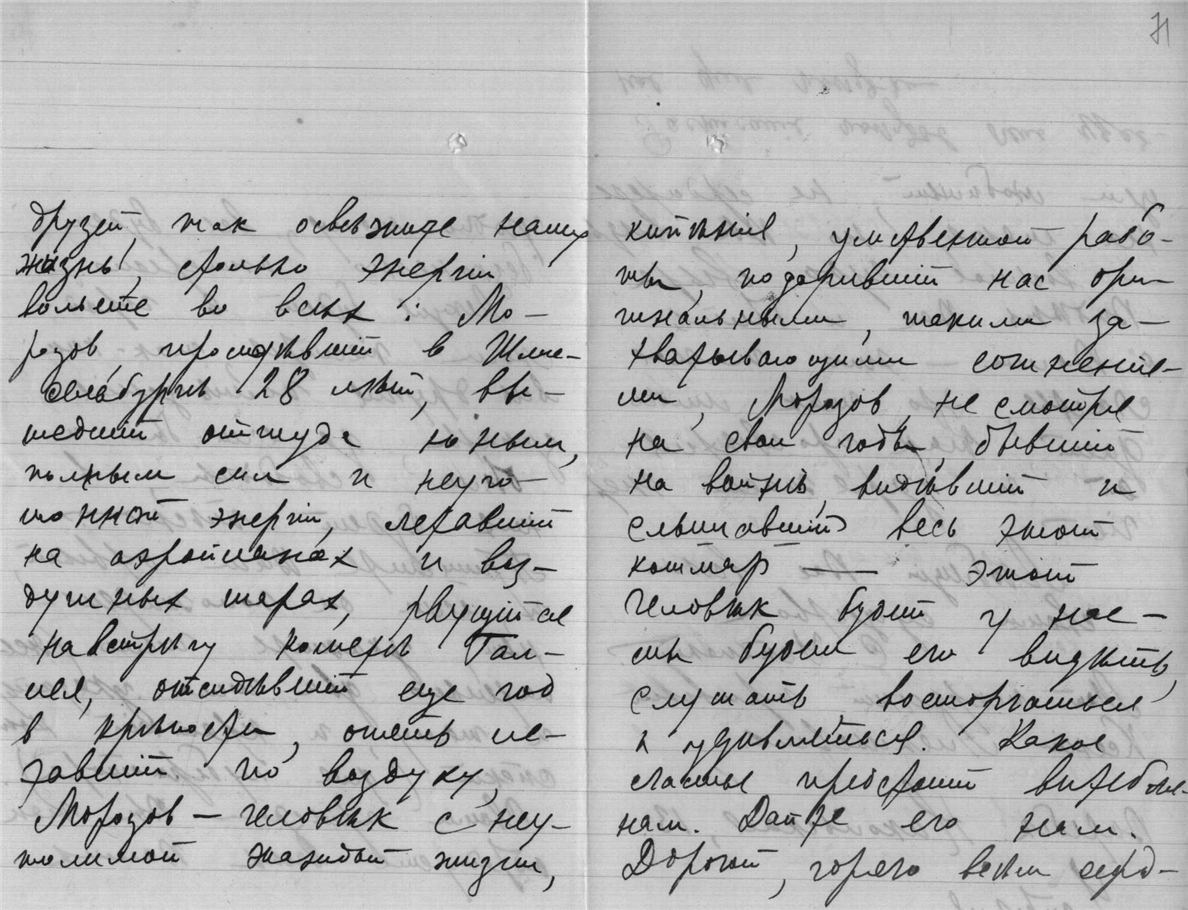 71
друзей, как освежите нашу
жизнь, сколько энергіи
вольете во всѣх: Мо-
розов просидѣвшій в Шлис-
сельбургѣ 28 лѣт, вы-
шедшій оттуда юным,
полным сил и неуго-
монной энергіи, летавшій
на аэропланах и воз-
душных шарах, рвущійся
навстрѣчу кометѣ Гал-
лея, отсидѣвшій еще год
в крѣпости, опять ле-
тавшій по воздуху,
Морозов — человѣк с неу-
толимой жаждой жизни,
кипѣнія, умственной рабо-
ты, подарившій нас ори-
гинальными, такими за-
хватывающими сочинені-
ми, Морозов, не смотря
на свои годы, бывшій
на войнѣ, видѣвшій и
слышавшій весь этот
кошмар — этот
человѣк будет у нас —
мы будем его видѣть,
слушать восторгаться
и удивляться. Какое
счастье предстоит витебля-
нам. Дайте его нам.
Дорогой, горячо всѣм серд-